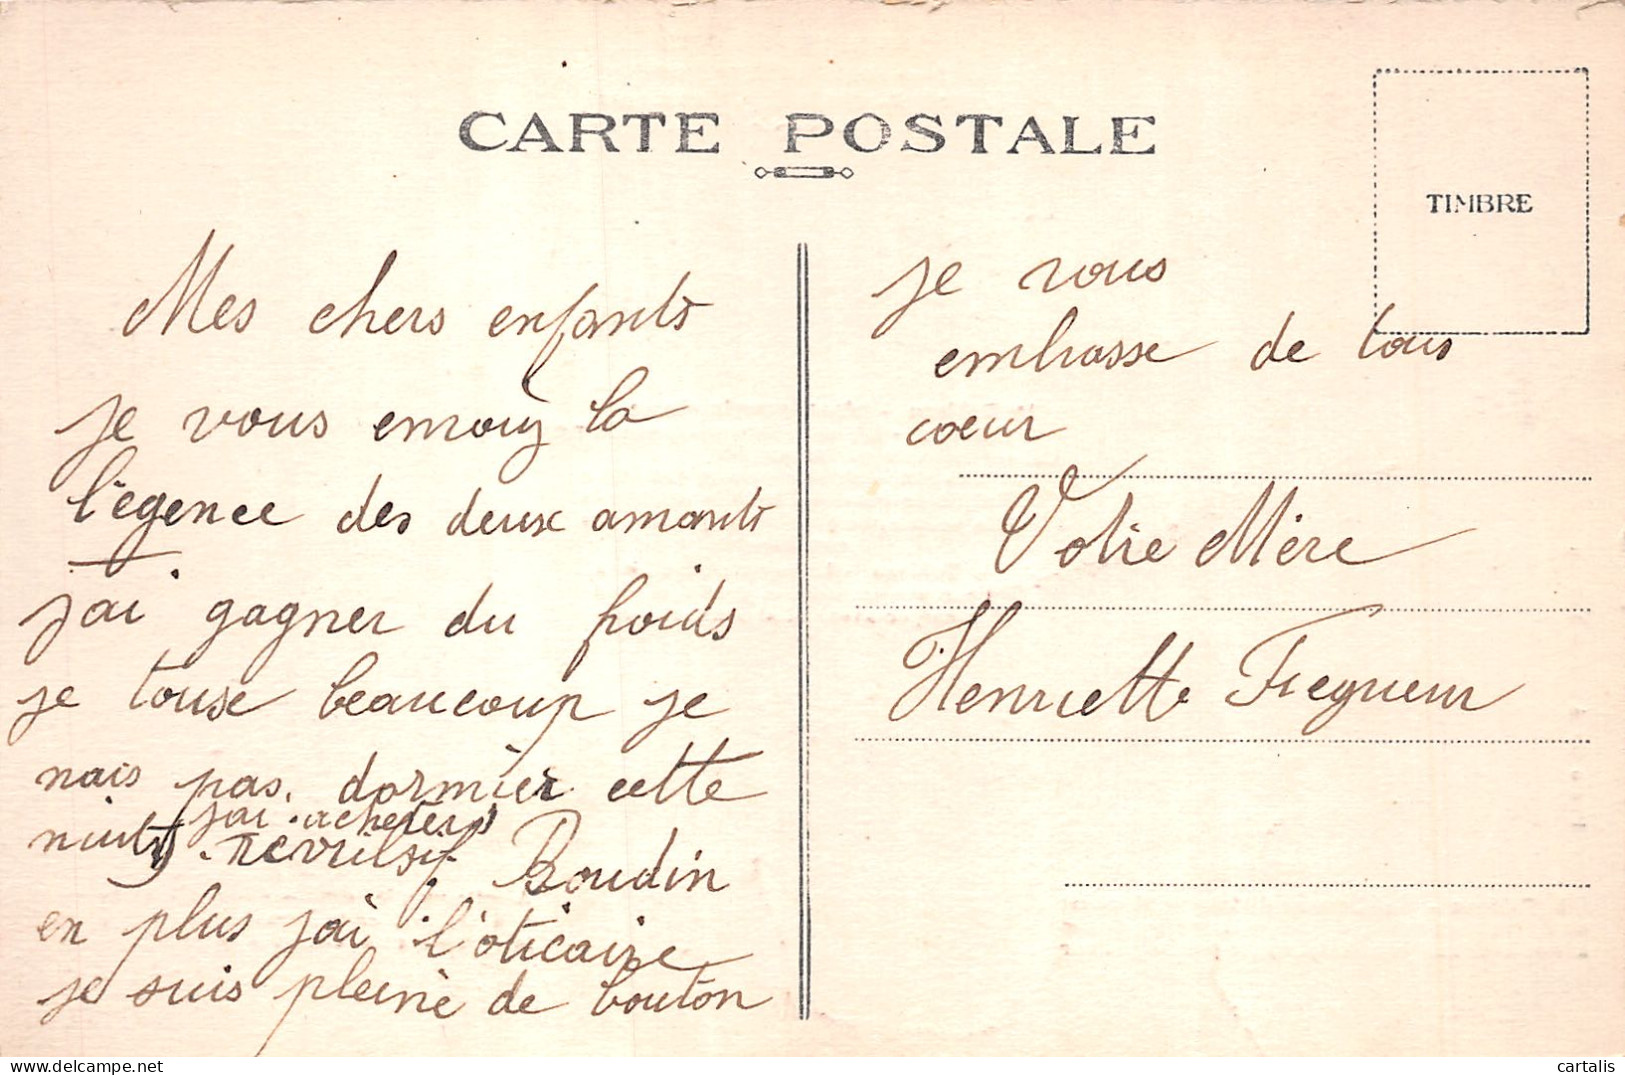 CARTE POSTALE
TIMBRE
Mes chers enfants
je vous envoiy la
l'egence des deux amants
j'ai gagner du poids
je touse beaucoup je
nais pas dormier cette
nuit j'ai acheter
revulsif Boudin
en plus j'ai l'oticaire
je suis pleine de bouton
je vous
embrasse de tous
coeur
Votre Mère
Henriette
cartalis